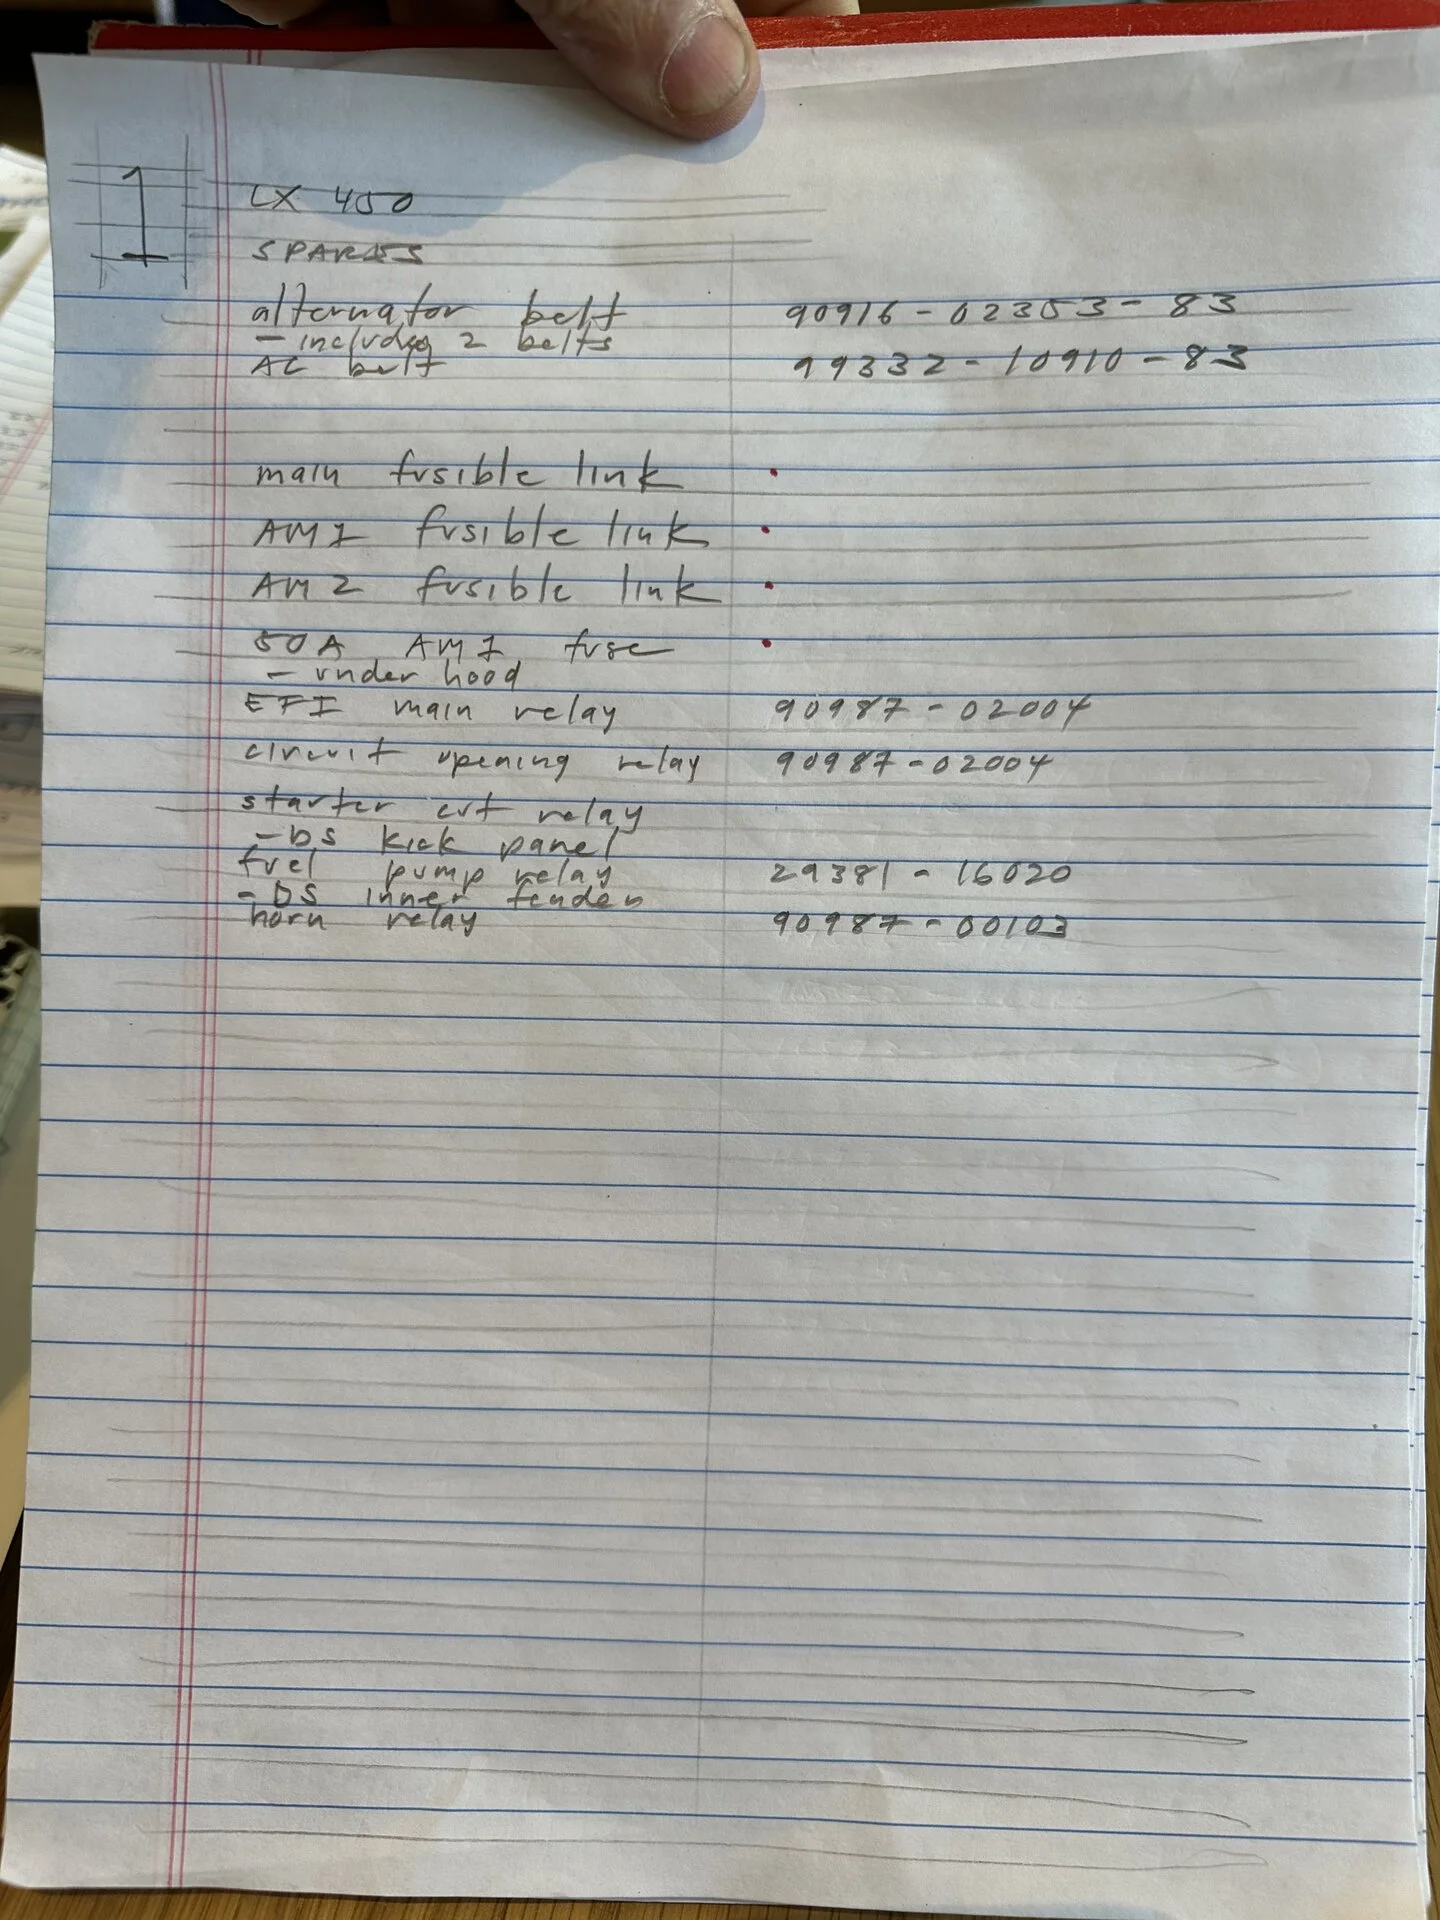 1
LX 450
SPARES
alternator belt 90916-02353-83
- including 2 belts
AC belt 99332-10910-83
main fusible link
AM1 fusible link
AM2 fusible link
50A AM1 fuse
- under hood
EFI main relay 90987-02004
circuit opening relay 90987-02004
starter cut relay
- DS kick panel
fuel pump relay 29381-16020
- DS inner fender
horn relay 90987-00103